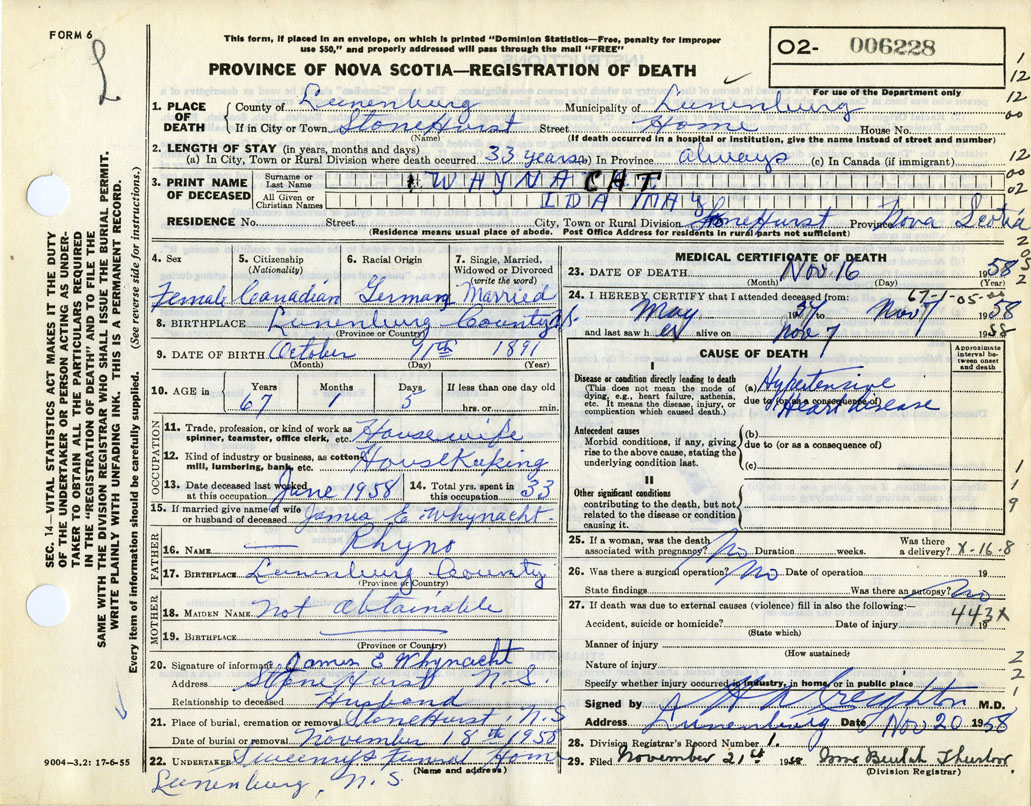 FORM 6
L
This form, if placed in an envelope, on which is printed "Dominion Statistics—Free, penalty for improper
use $50," and properly addressed will pass through the mail "FREE"
PROVINCE OF NOVA SCOTIA—REGISTRATION OF DEATH
02- 006228
For use of the Department only
1. PLACE OF DEATH
County of Lunenburg Municipality of Lunenburg
If in City or Town StoneHurst Street Home House No.
(Name) (If death occurred in a hospital or institution, give the name instead of street and number)
2. LENGTH OF STAY (in years, months and days)
(a) In City, Town or Rural Division where death occurred 33 years (b) In Province always (c) In Canada (if immigrant)
3. PRINT NAME OF DECEASED
Surname or Last Name WHYNACHT
All Given or Christian Names IDA MAY
RESIDENCE No. Street City, Town or Rural Division StoneHurst Province Nova Scotia
(Residence means usual place of abode. Post Office Address for residents in rural parts not sufficient)
4. Sex Female
5. Citizenship (Nationality) Canadian
6. Racial Origin German
7. Single, Married, Widowed or Divorced (write the word) Married
8. BIRTHPLACE Lunenburg County N.S.
(Province or Country)
9. DATE OF BIRTH October 11th 1891
(Month) (Day) (Year)
10. AGE in Years Months Days If less than one day old
67 1 5 hrs. or min.
OCCUPATION
11. Trade, profession, or kind of work as spinner, teamster, office clerk, etc. Housewife
12. Kind of industry or business, as cotton mill, lumbering, bank, etc. HouseKeeping
13. Date deceased last worked at this occupation June 1958
14. Total yrs. spent in this occupation 33
15. If married give name of wife or husband of deceased James E Whynacht
FATHER
16. NAME — Rhyno
17. BIRTHPLACE Lunenburg County
(Province or Country)
MOTHER
18. MAIDEN NAME Not Obtainable
19. BIRTHPLACE
(Province or Country)
20. Signature of informant James E Whynacht
Address StoneHurst N.S.
Relationship to deceased Husband
21. Place of burial, cremation or removal StoneHurst, N.S
Date of burial or removal November 18th 1958
22. UNDERTAKER Sweeny's Funeral Home
(Name and address)
Lunenburg, N.S.
MEDICAL CERTIFICATE OF DEATH
23. DATE OF DEATH Nov 16 1958
(Month) (Day) (Year)
67-1-05-
24. I HEREBY CERTIFY that I attended deceased from:
May 57 to Nov 7 1958
and last saw her alive on Nov 7 1958
CAUSE OF DEATH
Approximate interval between onset and death
I
Disease or condition directly leading to death
(This does not mean the mode of dying, e.g., heart failure, asthenia, etc. It means the disease, injury, or complication which caused death.)
(a) Hypertensive
due to (or as a consequence of)
Heart disease
Antecedent causes
Morbid conditions, if any, giving rise to the above cause, stating the underlying condition last.
(b)
due to (or as a consequence of)
(c)
II
Other significant conditions
contributing to the death, but not related to the disease or condition causing it.
25. If a woman, was the death associated with pregnancy? No Duration weeks. Was there a delivery? X-16-8
26. Was there a surgical operation? No Date of operation 19
State findings Was there an autopsy? No
27. If death was due to external causes (violence) fill in also the following:—
443X
Accident, suicide or homicide? Date of injury 19
(State which)
Manner of injury
(How sustained)
Nature of injury
Specify whether injury occurred in industry, in home, or in public place
Signed by H A Creighton M.D.
Address Lunenburg Date Nov 20 1958
28. Division Registrar's Record Number 1.
29. Filed November 21st 1958 Beulah
(Division Registrar)
SEC. 14—VITAL STATISTICS ACT MAKES IT THE DUTY
OF THE UNDERTAKER OR PERSON ACTING AS UNDER-
TAKER TO OBTAIN ALL THE PARTICULARS REQUIRED
IN THE "REGISTRATION OF DEATH" AND TO FILE THE
SAME WITH THE DIVISION REGISTRAR WHO SHALL ISSUE THE BURIAL PERMIT.
WRITE PLAINLY WITH UNFADING INK. THIS IS A PERMANENT RECORD.
Every item of information should be carefully supplied. (See reverse side for instructions.)
9004—3.2: 17-6-55
1
12
12
00
12
00
02
2
0
5
2
1
1
9
2
2
1